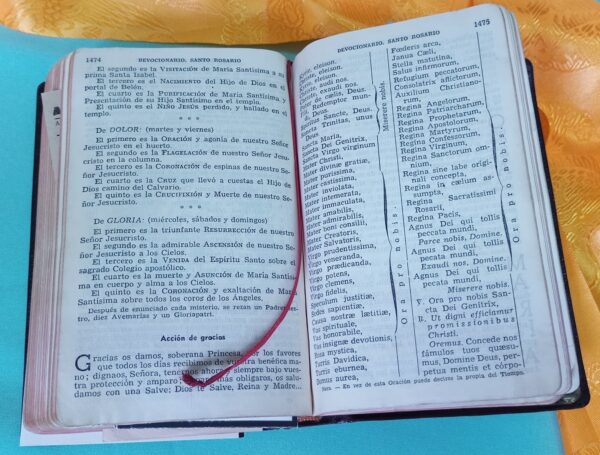 1474 DEVOCIONARIO. SANTO ROSARIO
El segundo es la VISITACIÓN de María Santísima a su
prima Santa Isabel.
El tercero es el NACIMIENTO del Hijo de Dios en el
portal de Belén.
El cuarto es la PURIFICACIÓN de María Santísima y
Presentación de su Hijo Santísimo en el templo.
El quinto es el NIÑO JESÚS perdido, y hallado en el
templo.
* * *
De DOLOR: (martes y viernes)
El primero es la ORACIÓN y agonía de nuestro Señor
Jesucristo en el huerto.
El segundo es la FLAGELACIÓN de nuestro Señor Jesu-
cristo en la columna.
El tercero es la CORONACIÓN de espinas de nuestro Se-
ñor Jesucristo.
El cuarto es la CRUZ que llevó a cuestas el Hijo de
Dios camino del Calvario.
El quinto es la CRUCIFIXIÓN y Muerte de nuestro Se-
ñor Jesucristo.
* * *
De GLORIA: (miércoles, sábados y domingos)
El primero es la triunfante RESURRECCIÓN de nuestro
Señor Jesucristo.
El segundo es la admirable ASCENSIÓN de nuestro Se-
ñor Jesucristo a los Cielos.
El tercero es la VENIDA del Espíritu Santo sobre el
sagrado Colegio apostólico.
El cuarto es la muerte y ASUNCIÓN de María Santísi-
ma en cuerpo y alma a los Cielos.
El quinto es la CORONACIÓN y exaltación de María
Santísima sobre todos los coros de los Ángeles.
Después de enunciado cada misterio, se rezan un Padrenues-
tro, diez Avemarías y un Gloriapatri.
Acción de gracias
Gracias os damos, soberana Princesa, por los favores
que todos los días recibimos de vuestra benéfica ma-
no; dignaos, Señora, tenernos ahora y siempre bajo vues-
tra protección y amparo; y para más obligaros, os salu-
damos con una Salve: Dios te Salve, Reina y Madre...
DEVOCIONARIO. SANTO ROSARIO 1475
Kyrie, eleison.
Christe, eleison.
Kyrie, eleison.
Christe, audi nos.
Christe, exaudi nos.
Pater de cælis, Deus,
Fili, Redemptor mundi,
Deus,
Spiritus Sancte, Deus,
Sancta Trinitas, unus
Deus,
Miserere nobis.
Sancta Maria,
Sancta Dei Genitrix,
Sancta Virgo virginum,
Mater Christi,
Mater divinæ gratiæ,
Mater purissima,
Mater castissima,
Mater inviolata,
Mater intemerata,
Mater immaculata,
Mater amabilis,
Mater admirabilis,
Mater boni consilii,
Mater Creatoris,
Mater Salvatoris,
Virgo prudentissima,
Virgo veneranda,
Virgo prædicanda,
Virgo potens,
Virgo clemens,
Virgo fidelis,
Speculum justitiæ,
Sedes sapientiæ,
Causa nostræ lætitiæ,
Vas spirituale,
Vas honorabile,
Vas insigne devotionis,
Rosa mystica,
Turris Davidica,
Turris eburnea,
Domus aurea,
Ora pro nobis.
Fœderis arca,
Janua Cæli,
Stella matutina,
Salus infirmorum,
Refugium peccatorum,
Consolatrix afflictorum,
Auxilium Christiano-
rum,
Regina Angelorum,
Regina Patriarcharum,
Regina Prophetarum,
Regina Apostolorum,
Regina Martyrum,
Regina Confessorum,
Regina Virginum,
Regina Sanctorum om-
nium,
Regina sine labe origi-
nali concepta,
Regina in cælum as-
sumpta,
Regina Sacratissimi
Rosarii,
Regina Pacis,
Ora pro nobis.
Agnus Dei qui tollis
peccata mundi,
Parce nobis, Domine.
Agnus Dei qui tollis
peccata mundi,
Exaudi nos, Domine.
Agnus Dei qui tollis
peccata mundi,
Miserere nobis.
V. Ora pro nobis Sanc-
ta Dei Genitrix,
R. Ut digni efficiamur
promissionibus
Christi.
Oremus. Concede nos
famulos tuos quæsu-
mus, Domine Deus, per-
petua mentis et córpo-
NOTA. — En vez de esta Oración puede decirse la propia del Tiempo.